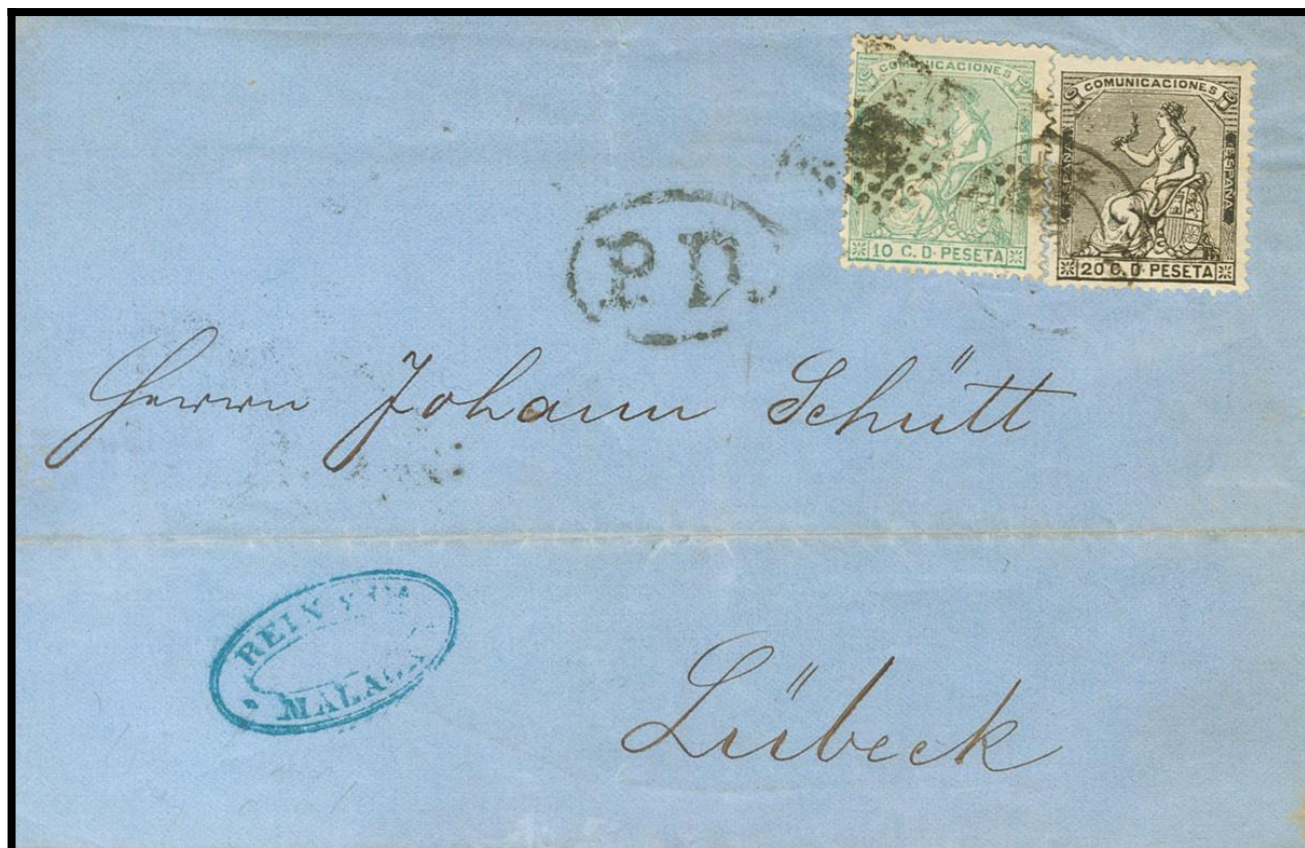 COMUNICACIONES
10 C. D. PESETA
COMUNICACIONES
ESPAÑA
ESPAÑA
20 C. D. PESETA
P.D.
Herrn Johann Schütt
REIN Y
MALAGA
Lübeck